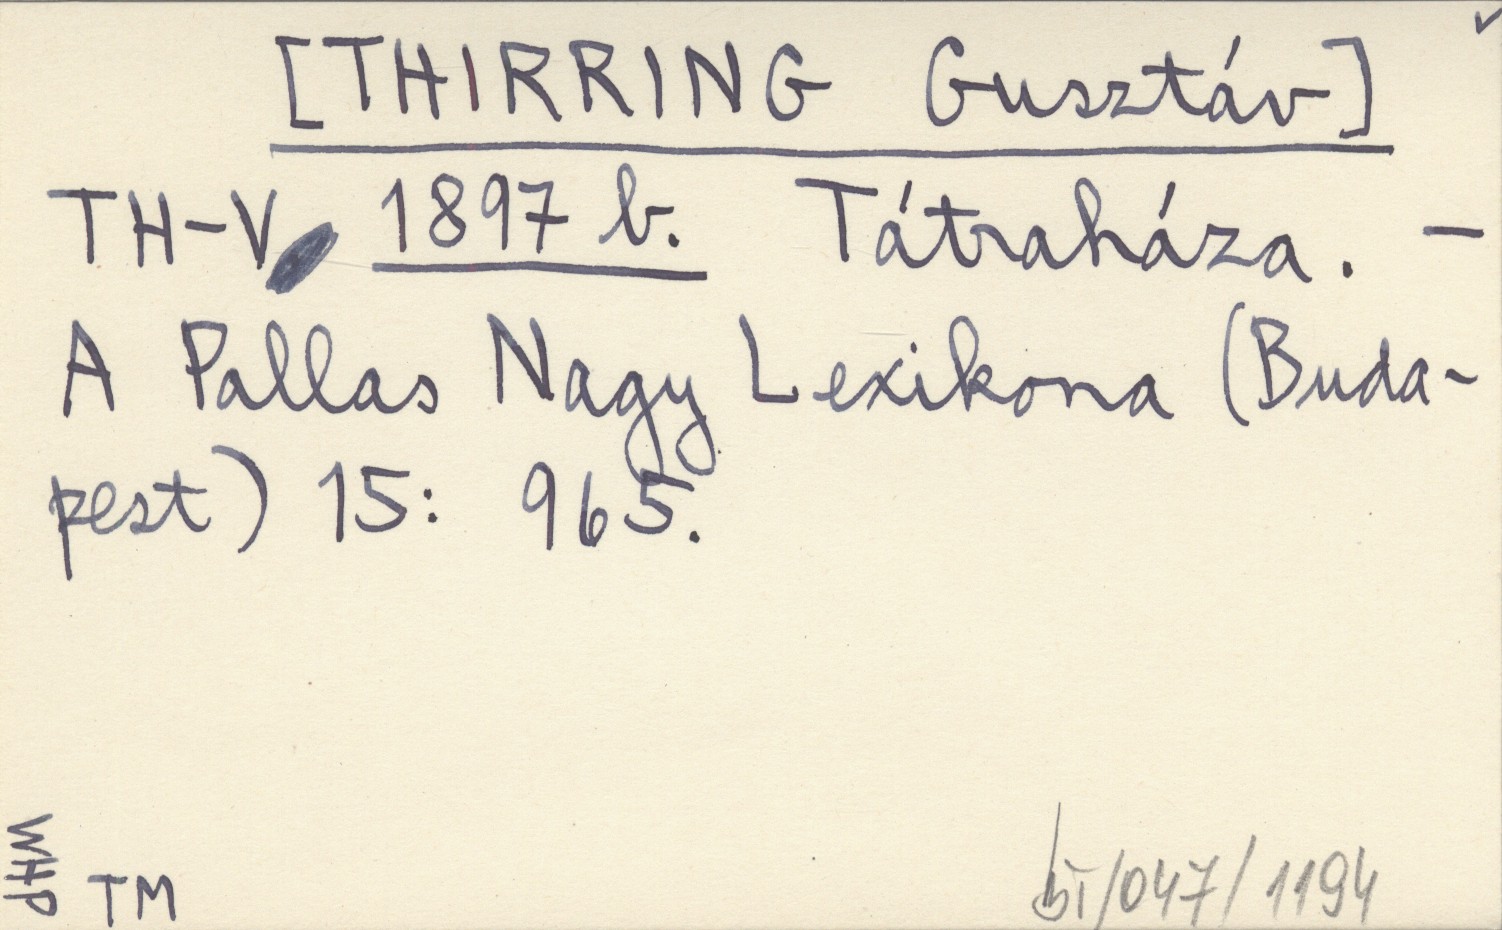 [THIRRING Gusztáv]
TH-V 1897 b. Tátraháza. –
A Pallas Nagy Lexikona (Buda-
pest) 15: 965.
WHP
TM
bi/047/1194